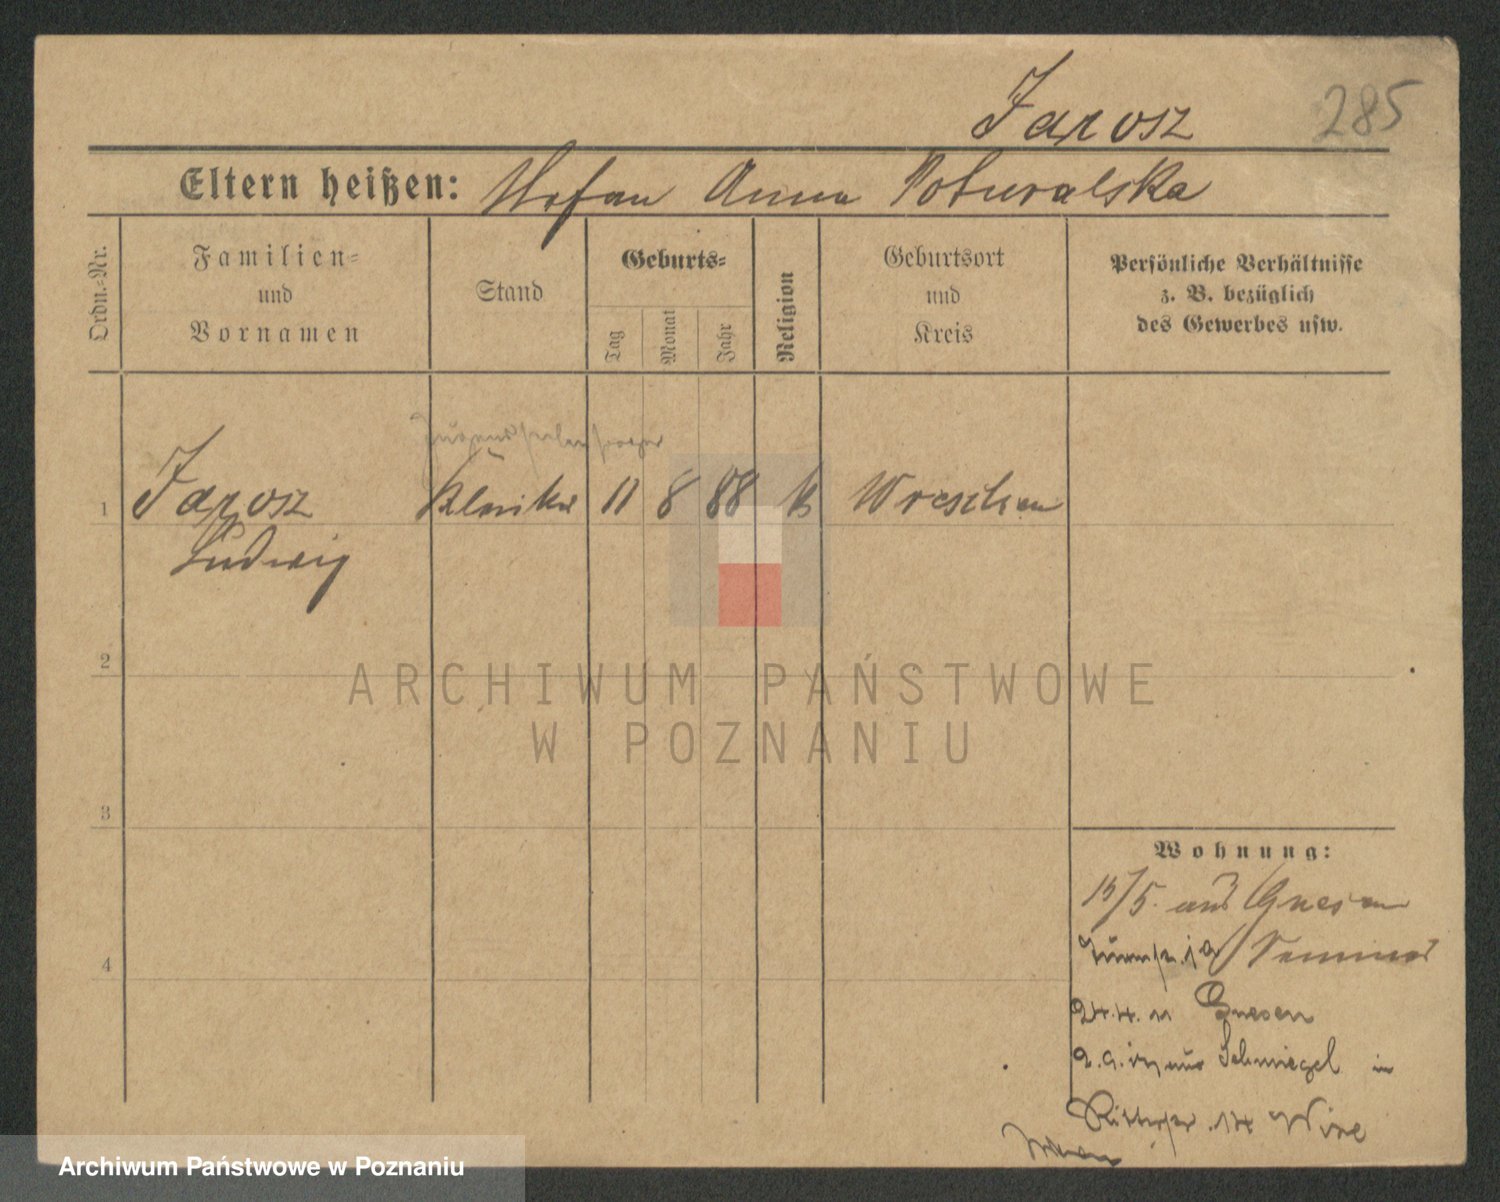 Jarosz
285
Eltern heißen: Stefan Anna Poturalska
Ordn.-Nr.
Familien-
und
Vornamen
Stand
Geburts-
Tag
Monat
Jahr
Religion
Geburtsort
und
Kreis
Persönliche Verhältnisse
z. B. bezüglich
des Gewerbes usw.
1 Jarosz Kleriker 11 8 88 k Wreschen
Ludwig
2
3
4
Wohnung:
15/5. aus Gnesen
Seminar
24.4. n Gnesen
2.9. aus Schmiegel in
Ritterstr. 14 Wire
ARCHIWUM PAŃSTWOWE
W POZNANIU
Archiwum Państwowe w Poznaniu